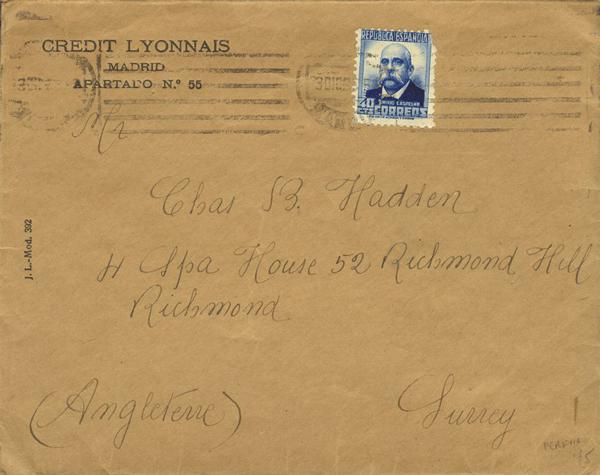 CREDIT LYONNAIS
MADRID
APARTADO N.º 55
REPUBLICA ESPAÑOLA
EMILIO CASTELAR
40
CORREOS
Mr
Chas B. Hadden
4 Spa House 52 Richmond Hill
Richmond
(Angleterre)
Surrey
J. L.-Mod. 392